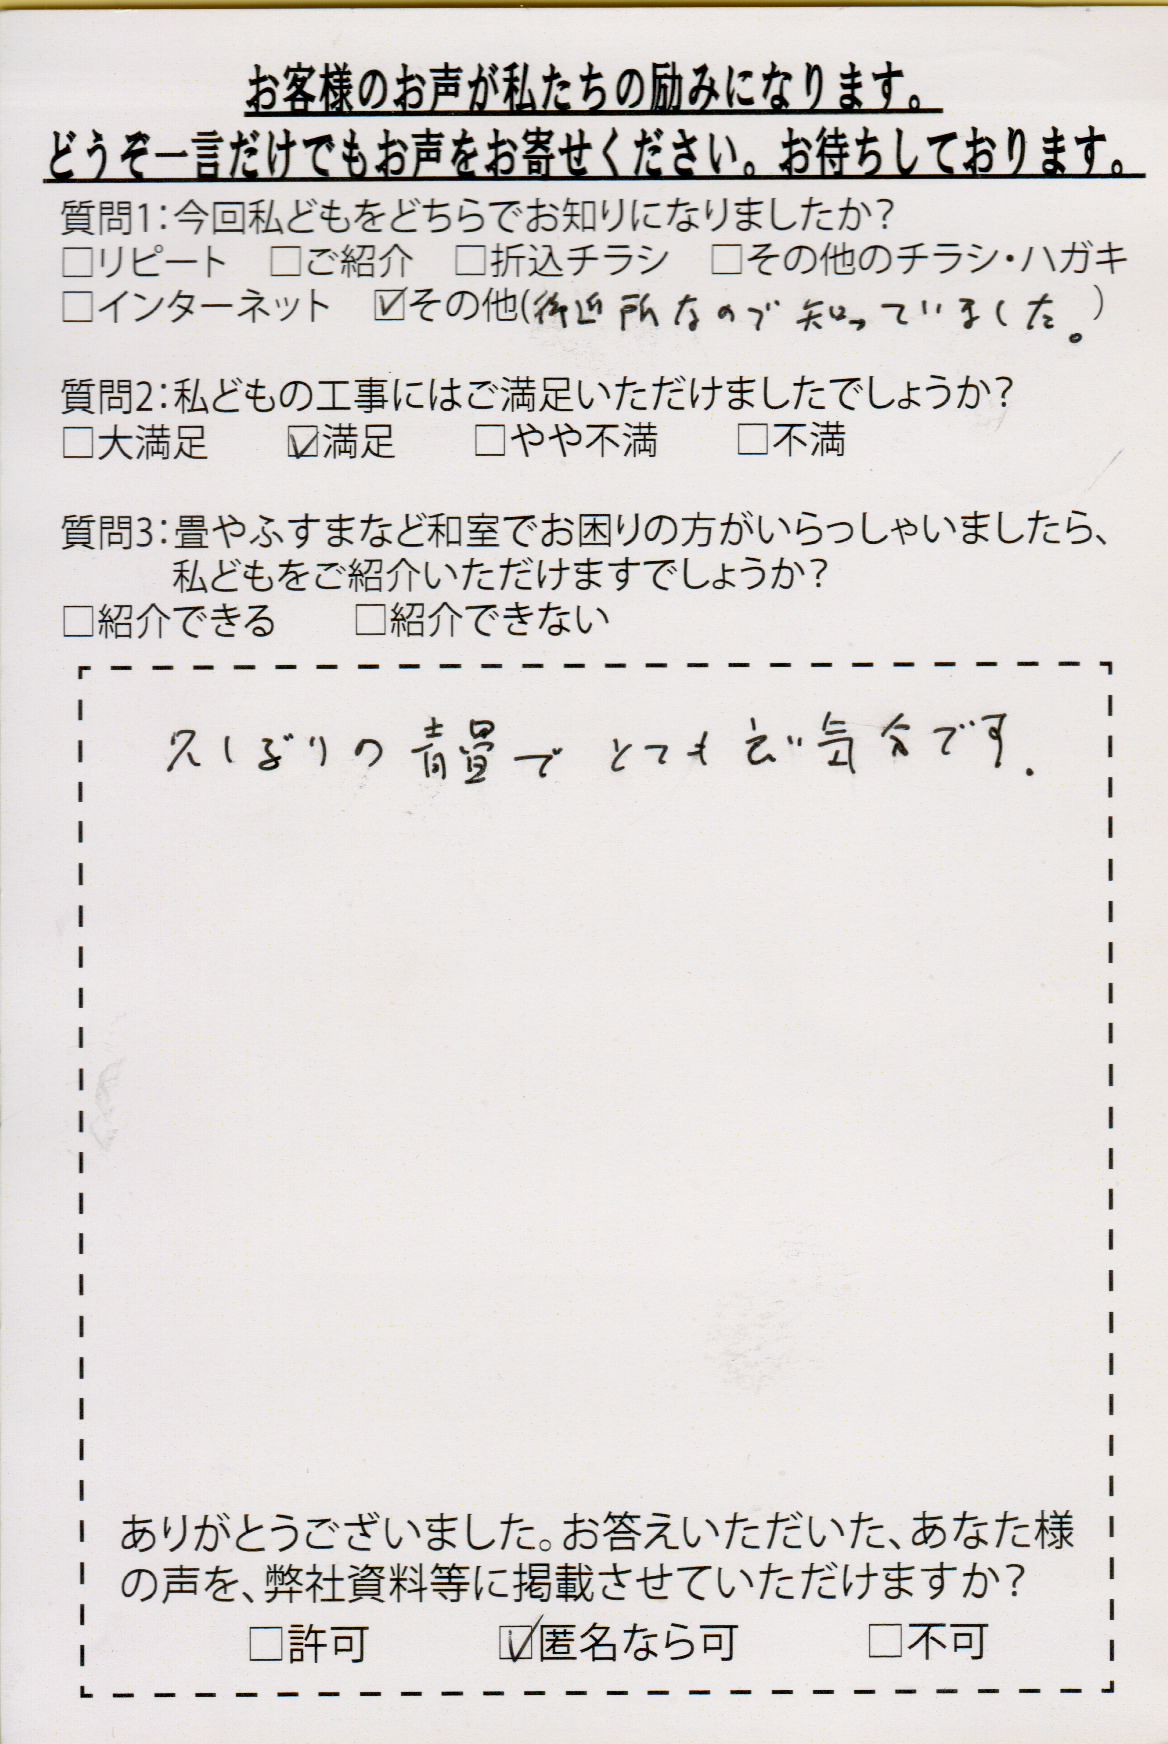 お客様のお声が私たちの励みになります。
どうぞ一言だけでもお声をお寄せください。お待ちしております。
質問1：今回私どもをどちらでお知りになりましたか？
□リピート □ご紹介 □折込チラシ □その他のチラシ・ハガキ
□インターネット ☑その他(御近所なので知っていました。)
質問2：私どもの工事にはご満足いただけましたでしょうか？
□大満足 ☑満足 □やや不満 □不満
質問3：畳やふすまなど和室でお困りの方がいらっしゃいましたら、
私どもをご紹介いただけますでしょうか？
□紹介できる □紹介できない
久しぶりの青畳でとても 気分です.
ありがとうございました。お答えいただいた、あなた様
の声を、弊社資料等に掲載させていただけますか？
□許可 ☑匿名なら可 □不可